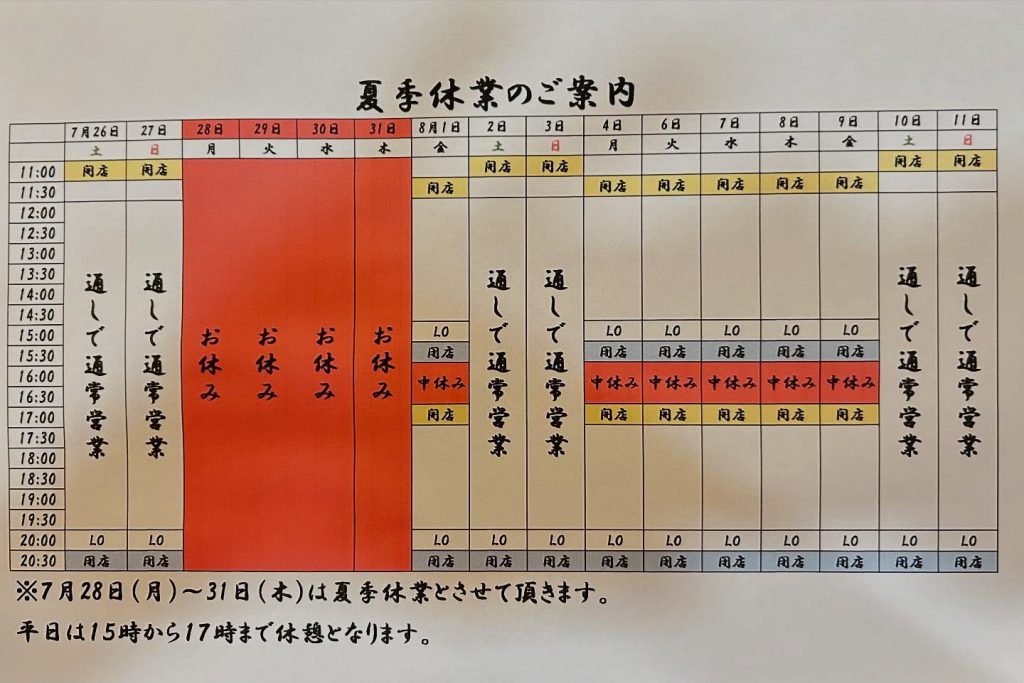 夏季休業のご案内
7月26日 27日 28日 29日 30日 31日 8月1日 2日 3日 4日 6日 7日 8日 9日 10日 11日
土 日 月 火 水 木 金 土 日 月 火 水 木 金 土 日
11:00 開店 開店 開店 開店 開店 開店
11:30 開店 開店 開店 開店 開店 開店
12:00
12:30
13:00
13:30
14:00
14:30
通しで通常営業 通しで通常営業 お休み お休み お休み お休み 通しで通常営業 通しで通常営業 通しで通常営業 通しで通常営業
15:00 LO LO LO LO LO LO
15:30 閉店 閉店 閉店 閉店 閉店 閉店
16:00 中休み 中休み 中休み 中休み 中休み 中休み
16:30
17:00 開店 開店 開店 開店 開店 開店
17:30
18:00
18:30
19:00
19:30
20:00 LO LO LO LO LO LO LO LO LO LO LO LO
20:30 閉店 閉店 閉店 閉店 閉店 閉店 閉店 閉店 閉店 閉店 閉店 閉店
※7月28日(月)～31日(木)は夏季休業とさせて頂きます。
平日は15時から17時まで休憩となります。